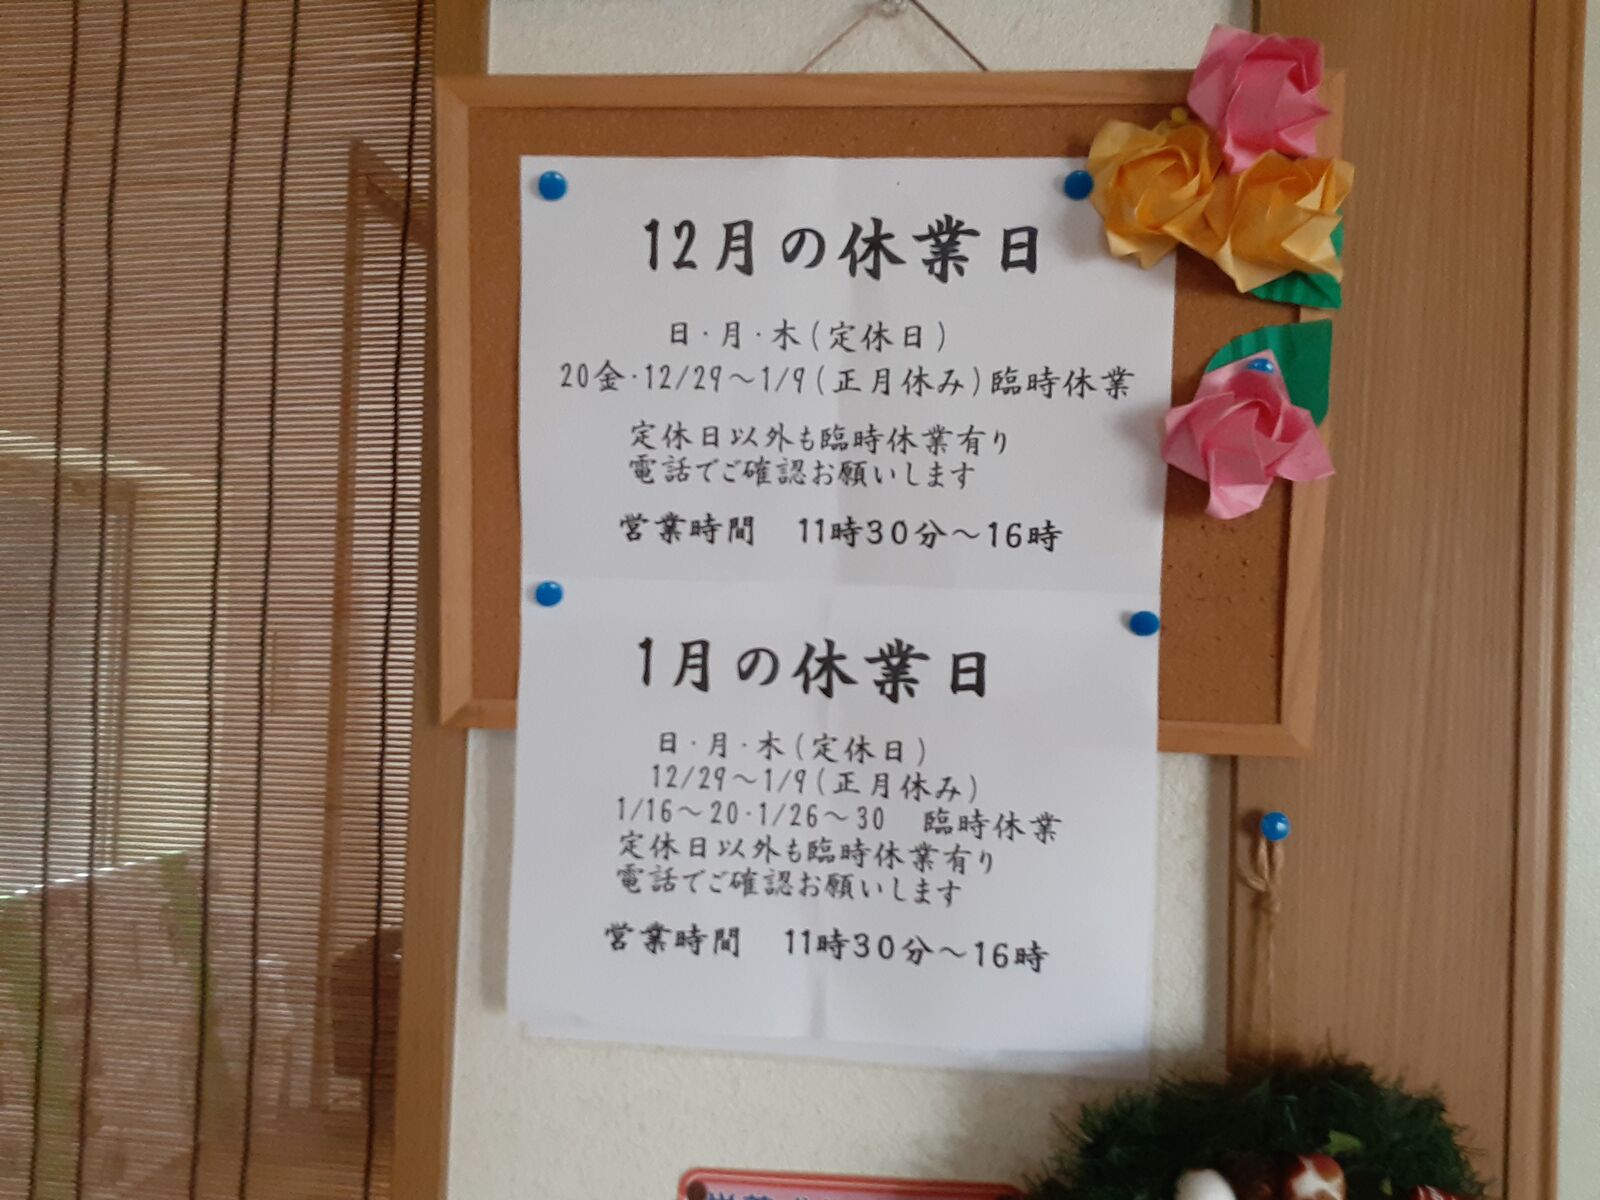 12月の休業日
日・月・木(定休日)
20金・12/29～1/9(正月休み)臨時休業
定休日以外も臨時休業有り
電話でご確認お願いします
営業時間　11時30分～16時
1月の休業日
日・月・木(定休日)
12/29～1/9(正月休み)
1/16～20・1/26～30　臨時休業
定休日以外も臨時休業有り
電話でご確認お願いします
営業時間　11時30分～16時